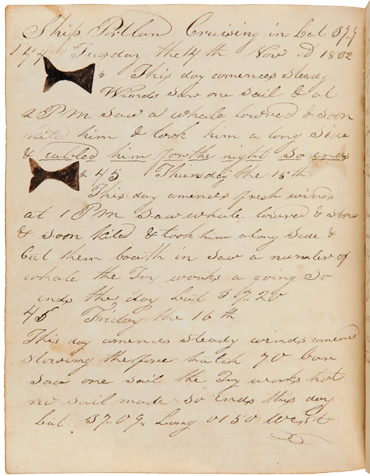 Ship Portland Cruising in Lat 37,9
Tuesday the 14th Nov. D
This day comences steady
Winds saw one sail & at
2 P m saw a whale lowred & soon
him & took him a long side
& cabled him for the night So ends
45 Thursday the 15th
This day comences fresh winds
at 1 P m saw whale lowered &
& soon kiled & took him along side &
cut them boath in saw a number of
whale the Try works a going So
ends the day Lat 37.20
45 Friday the 16th
This day comences steady winds
stowing the fore hatch 70 barr
saw one sail the Try works hot
no sail made So Ends this day
Lat 37.09, Long 0150 West